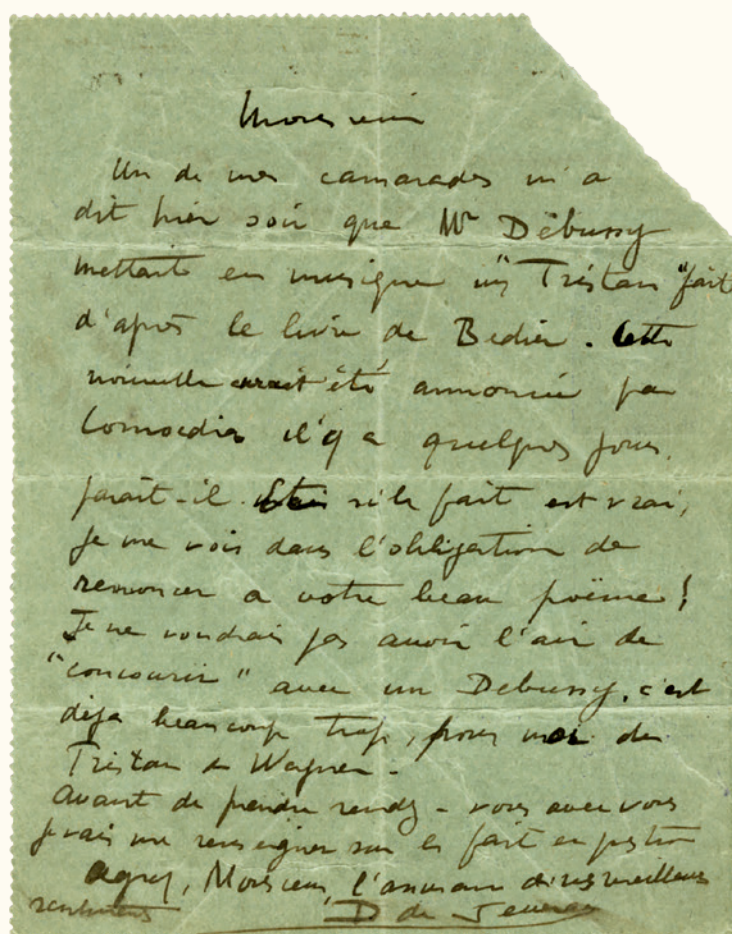 Monsieur
Un de mes camarades m'a
dit hier soir que Mr Débussy
mettait en musique un "Tristan" fait
d'après le livre de Bedier. Cette
nouvelle aurait été annoncée par
Comoedia il y a quelques jours,
paraît-il. si le fait est vrai,
je me vois dans l'obligation de
renoncer a votre beau poëme!
Je ne voudrais pas avoir l'air de
"concourir" avec un Debussy, c'est
déja beaucoup trop, pour moi du
Tristan de Wagner -
Avant de prendre rendez-vous avec vous
je vais me renseigner sur le fait en question
Agréez, Monsieur, l'assurance de mes meilleurs
sentiments D de Severac